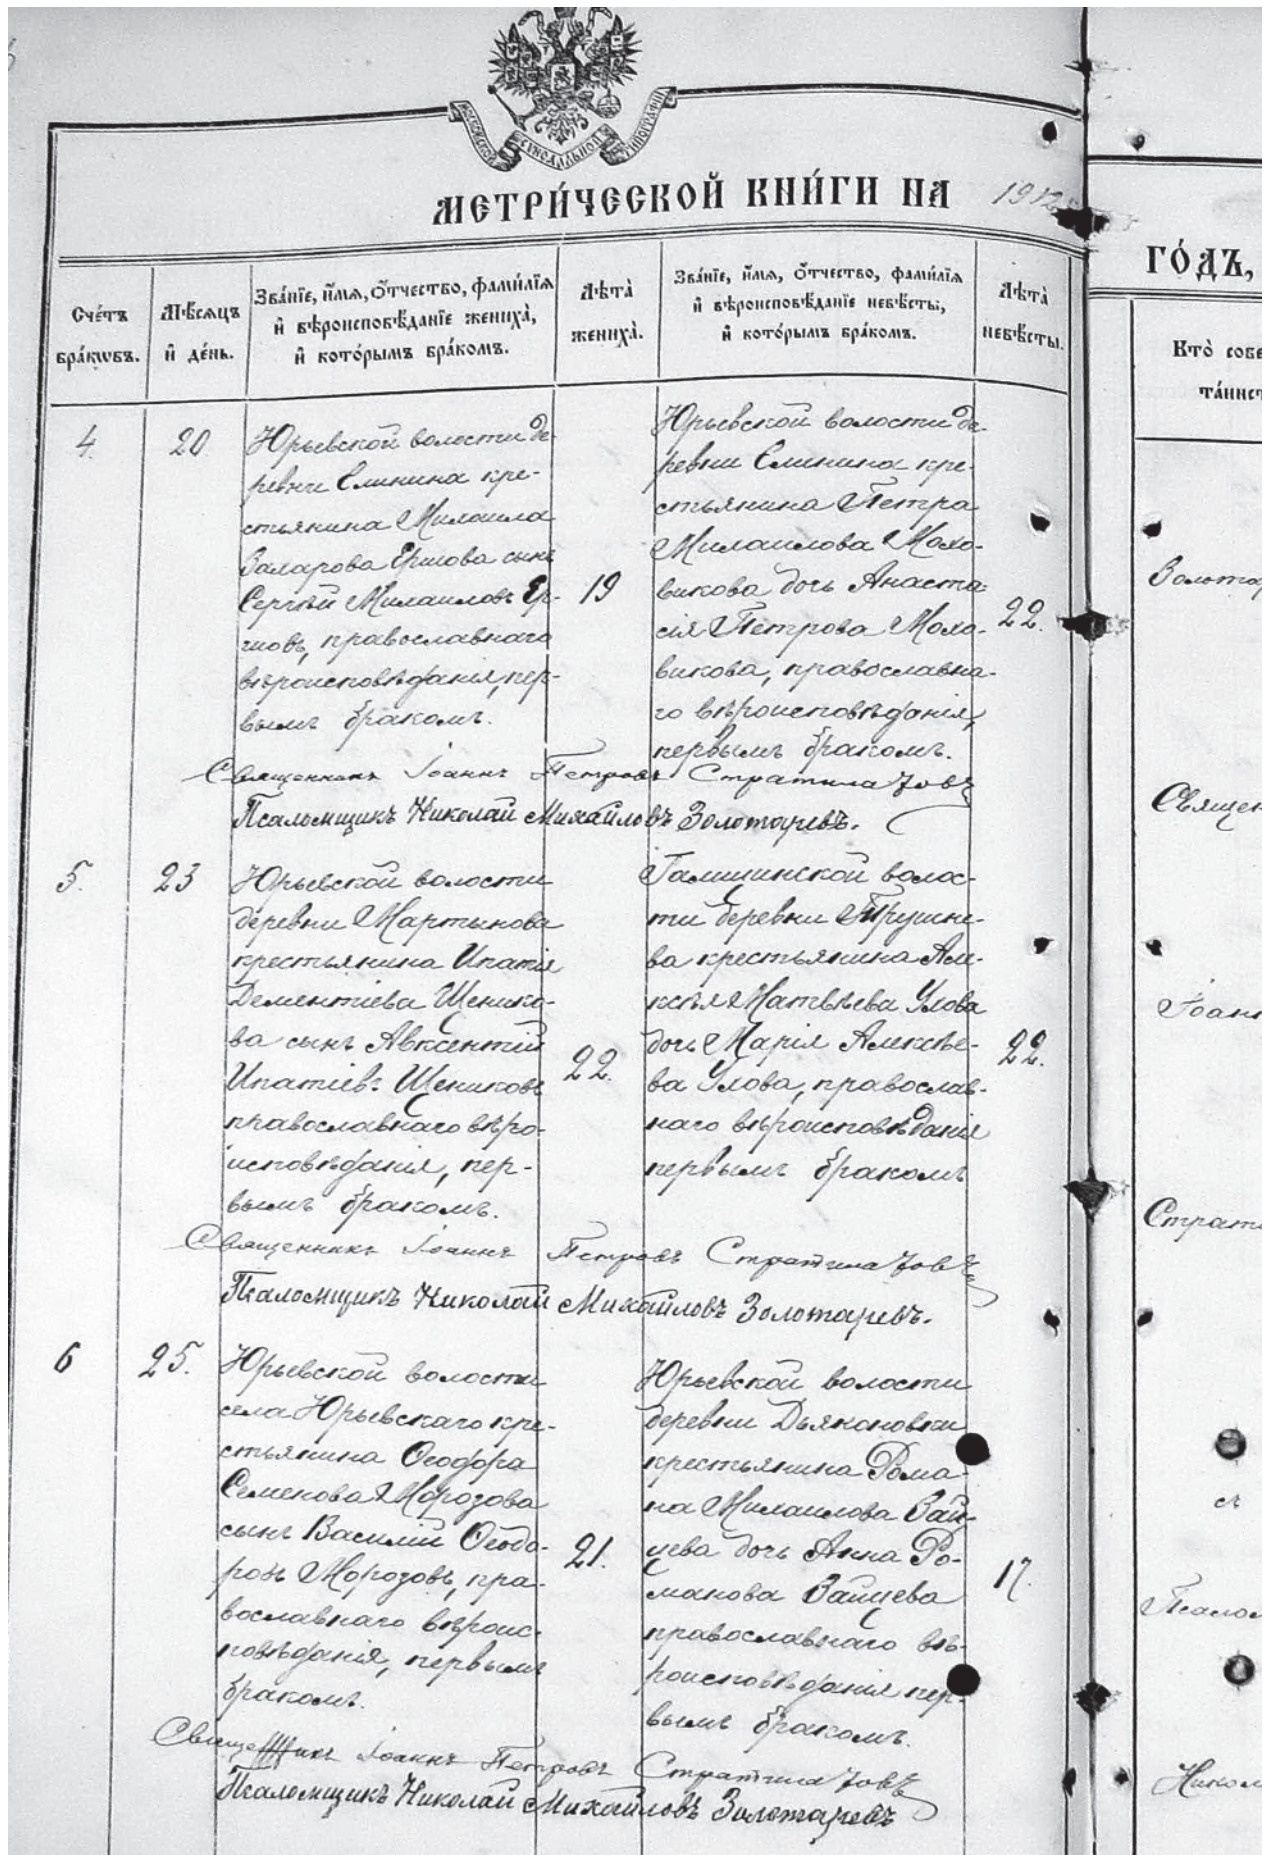 МОСКОВСКОЙ СѴНОДАЛЬНОЙ ТИПОГРАФІИ
МЕТРИ́ЧЕСКОЙ КНИ́ГИ НА 1912
ГО́ДЪ,
Сче́тъ бра́кѡвъ.
Мѣ́сяцъ и҆ де́нь.
Зва́нїе, и҆́мя, ѻ҆́тчество, фами́лїя
и҆ вѣроисповѣ́данїе женихà,
и҆ кото́рымъ бра́комъ.
Лѣтà
женихà.
Зва́нїе, и҆́мя, ѻ҆́тчество, фами́лїя
и҆ вѣроисповѣ́данїе невѣ́сты,
и҆ кото́рымъ бра́комъ.
Лѣтà
невѣ́сты.
Кто̀ сове
та́инст
4.
20
Юрьевской волости де-
ревни Елинина кре-
стьянина Михаила
Захарова Ершова сынъ
Сергѣй Михаиловъ Ер-
шовъ, православнаго
вѣроисповѣданія, пер-
вымъ бракомъ.
19
Юрьевской волости де-
ревни Елинина кре-
стьянина Петра
Михаилова Мохо-
викова дочь Анаста-
сія Петрова Мохо-
викова, православна-
го вѣроисповѣданія,
первымъ бракомъ.
22.
Священникъ Іоаннъ Петровъ Стратилатовъ
Псаломщикъ Николай Михайловъ Золотаревъ.
5.
23
Юрьевской волости
деревни Мартынова
крестьянина Ипатія
Дементіева Щенико-
ва сынъ Авксентій
Ипатіевъ Щениковъ
православнаго вѣро-
исповѣданія, пер-
вымъ бракомъ.
22.
Галишинской волос-
ти деревни Трушне-
ва крестьянина Але-
ксѣя Матвѣева Улова
дочь Марія Алексѣе-
ва Улова, православ-
наго вѣроисповѣданія
первымъ бракомъ
22.
Священникъ Іоаннъ Петровъ Стратилатовъ
Псаломщикъ Николай Михайловъ Золотаревъ.
6
25.
Юрьевской волости
села Юрьевскаго кре-
стьянина Ѳеодора
Семенова Морозова
сынъ Василій Ѳеодо-
ровъ Морозовъ, пра-
вославнаго вѣроис-
повѣданія, первымъ
бракомъ.
21.
Юрьевской волости
деревни Дьяконовки
крестьянина Рома-
на Михаилова Зай-
цева дочь Анна Ро-
манова Зайцева
православнаго вѣ-
роисповѣданія пер-
вымъ бракомъ.
17.
Священникъ Іоаннъ Петровъ Стратилатовъ
Псаломщикъ Николай Михайловъ Золотаревъ
Золота
Священ
Іоан
Страти
съ
Псалом
Никол